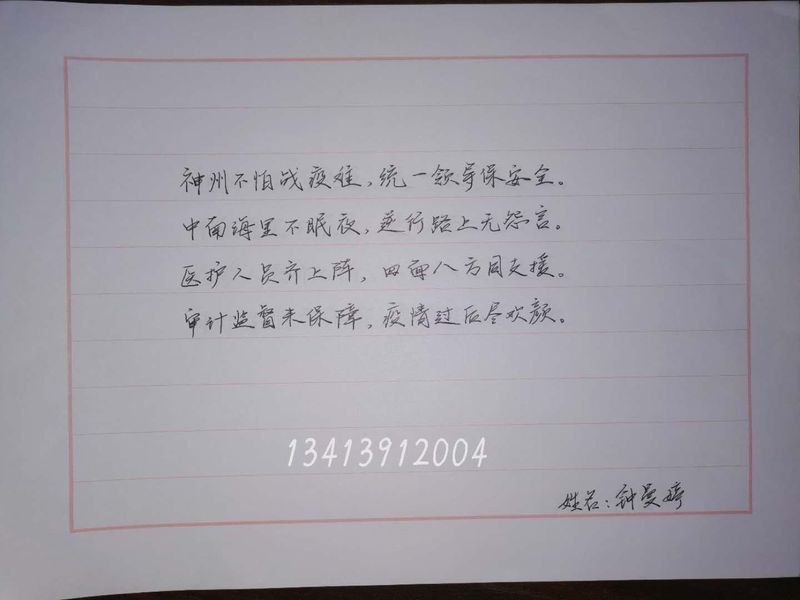 神州不怕战疫难，统一领导保安全。
中南海里不眠夜，逆行路上无怨言。
医护人员齐上阵，四面八方同支援。
审计监督来保障，疫情过后尽欢颜。
13413912004
姓名：钟曼婷